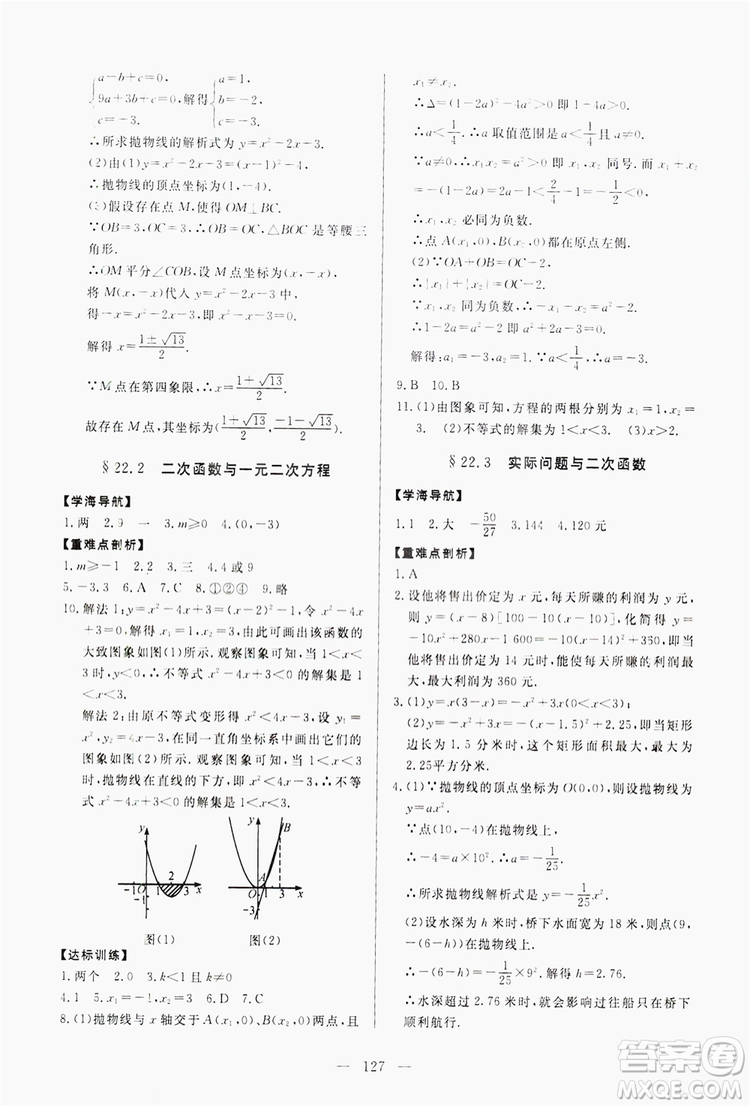 a-b+c=0,
9a+3b+c=0,解得
c=-3.
a=1,
b=-2,
c=-3.
∴所求抛物线的解析式为 x²-2x-3.
(2)由(1)可得 y=x²-2x-3,
∴抛物线的顶点坐标为(1,-4).
(3)假设存在点 M,使得 OM⊥BC.
∵OB=3,OC=3,△BOC 是等腰三
角形.
∴OM 平分∠COB,设 M 点坐标为
将 M(x,-x)代入 y=x²-2x-3,
得-x=x²-2x-3,即 x²-x-3=0.
解得 x=(1±√13)/2.
∵M 点在第四象限,∴x=(1+√13)/2.
故存在 M 点,其坐标为((1+√13)/2,(-1-√13)/2).
§22.2 二次函数与一元二次方程
【学海导航】
1.两 2.9 一 3.m>9 4.(0,-3)
【重难点剖析】
1.m≥-1 2.2 3.三 4.4 或 9
5.-3,3 6.A 7.C 8.①②④ 9.略
10.解法 1:y=x²-4x+3=(x-2)²-1,
解得 x₁=1,x₂=3.由此可画出该函数的
大致图象如图(1)所示.观察图象可知当 1<x<
3 时,y<0.∴不等式 x²-4x+3<0 的解集是 1
<x<3.
解法 2:由原不等式变形得 x²<4x-3,设 y₁=
x²,y₂=4x-3,在同一直角坐标系中画出它们的
图象如图(2)所示.观察图象可知:当 1<x<3
时,抛物线在直线的下方,即 x²<4x-3.∴不
等式 x²-4x+3<0 的解集是 1<x<3.
y
-1 O 1 2 3 x
-1
图(1)
y
B
A
O 1 3 x
-3
图(2)
【达标训练】
1.两个 2.0 3.k<1 且 k≠0
4.1 5.x₁=-1,x₂=3 6.D 7.C
8.(1)抛物线与 x 轴交于 A(x₁,0),B(x₂,0)两点,且
x₁≠x₂.
∴Δ=(1-2a)²-4a²>0 即 1-4a>0.
∴a<1/4.∴a 取值范围是 a<1/4 且 a≠0.
∵a≠0.∴x₁x₂=a²>0 即 x₁、x₂ 同号.而 x₁+x₂
=-(1-2a)=2a-1<2/4-1=-1/2<0.
∴x₁、x₂ 必同为负数.
∴点 A(x₁,0),B(x₂,0)都在原点左侧.
(2)∵OA+OB=OC-2.
∴|x₁|+|x₂|=a²-2.
∵x₁、x₂ 同为负数.∴-x₁-x₂=a²-2.
∴1-2a=a²-2.∴a²+2a-3=0.
解得:a₁=1,a₂=-3.∵a<1/4 且 a≠0.∴a=-3.
9.B 10.B
11.(1)由图象可知,方程的两根分别为 x₁=1,x₂=
3. (2)不等式的解集为 1<x<3. (3)x>2.
§22.3 实际问题与二次函数
【学海导航】
1.1 2.大 -50/27 3.144 4.120 元
【重难点剖析】
1.A
2.设他将售出价定为 x 元,每天所赚的利润为 y 元,
则 y=(x-8)[100-10(x-10)],化简得 y=
-10x²+280x-1 600=-10(x-14)²+360.
∴他将售出价定为 14 元时,每天所赚的利润最大,
最大利润为 360 元.
3.(1)y=x(3-x)=-x²+3x(0<x<3).
(2)y=-x²+3x=-(x-1.5)²+2.25,即当矩形
边长为 1.5 米时,矩形面积最大,且最大面积为
2.25平方米.
4.(1)∵抛物线的顶点坐标为O(0,0),则设抛物线为
y=ax².
∵点(10,-4)在抛物线上,
∴-4=a×10²,∴a=-1/25.
∴所求抛物线解析式为 y=-1/25x².
(2)设水深为 h 米时,桥下水面宽为 18 米,则点(9,
-(6-h))在抛物线上.
∴-(6-h)=-1/25×9². 解得 h=2.76.
∴水深超过 2.76 米时,就会影响过往船只在桥下
顺利航行.
— 127 —
答案圈
MXQE.COM